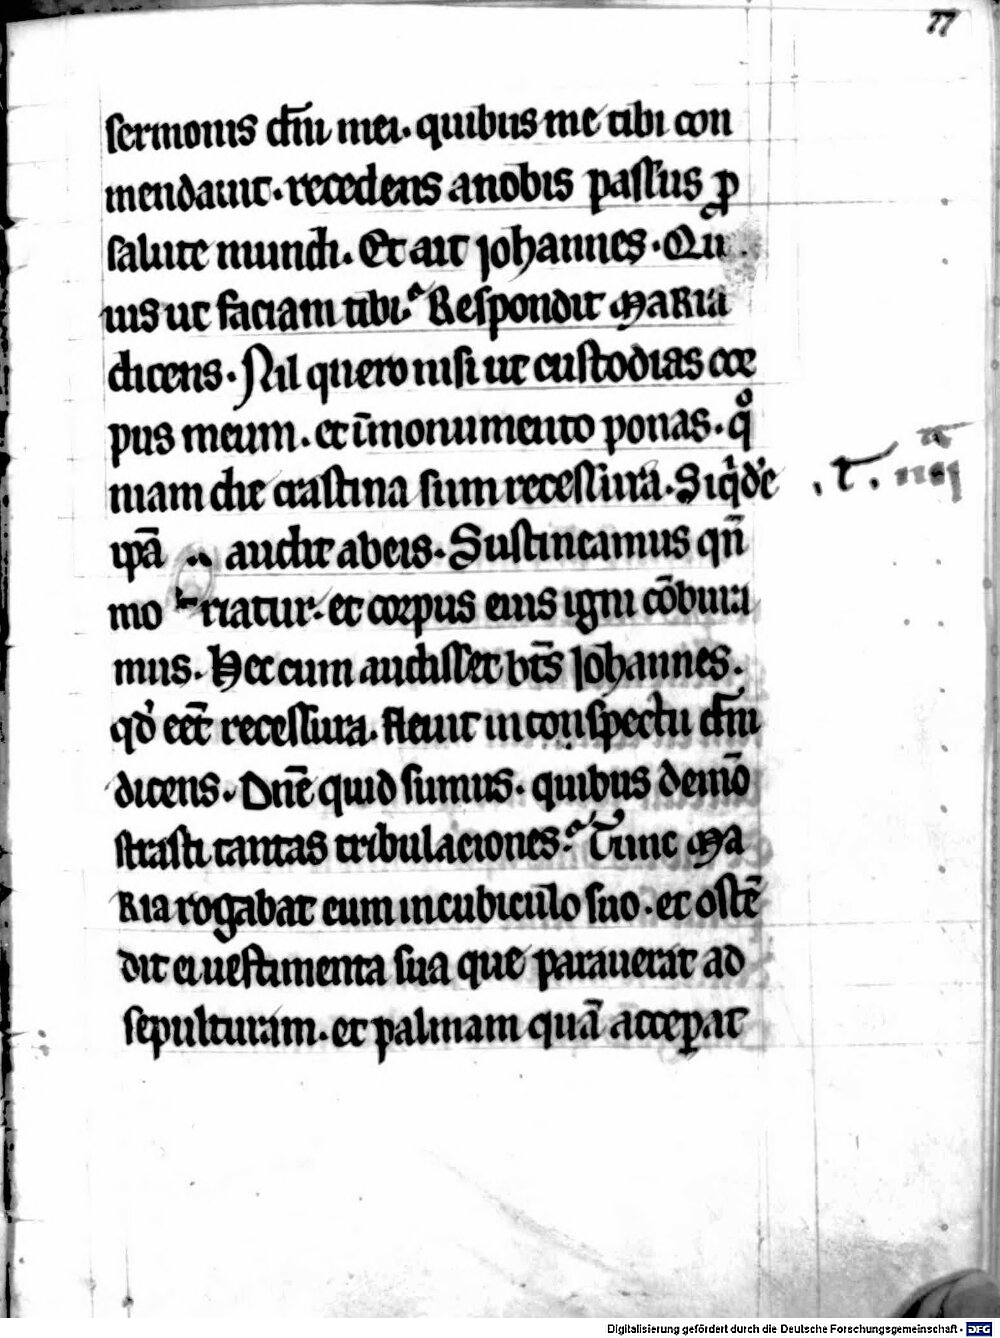 77
sermonis dn̄i mei. quibus me tibi con
mendauit. recedens a nobis passus ꝓ
salute mundi. Et ait johannes. Qu
uis ut faciam tibi. Respondit Maria
dicens. Nil quero nisi ut custodias cor
pus meum. et ī monumento ponas. qͦ
niam die crastina sum recessura. Siqͥdē
ip̄a audit abeis. Sustineamus qn̄
mo riatur. et corpus eius igni cōburi
mus. Hec cum audisset bt̄s Johannes.
qd̓ eēt recessura. fleuit in conspectu dn̄i
dicens. Dn̄e quid sumus. quibus demō
strasti tantas tribulaciones. Tunc Ma
Ria rogabat eum in cubiculo suo. et ostē
dit ei uestimenta sua que parauerat ad
sepulturam. et palmam quā acceꝑat
Digitalisierung gefördert durch die Deutsche Forschungsgemeinschaft - DFG